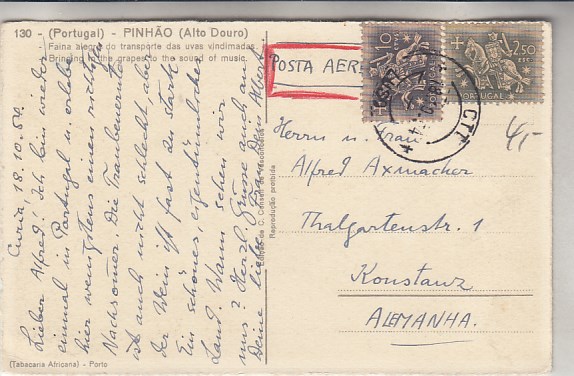 130 - (Portugal) - PINHÃO (Alto Douro)
- Faina alegre do transporte das uvas vindimadas.
- Bringing of the grapes to the sound of music.
Curia, 18.10.54.
Lieber Alfred! Ich bin wieder
einmal in Portugal u. erlebe
hier wenigstens einen richtigen
Nachsommer. Die Traubenernte
ist auch nicht schlecht, aber
der Wein ist fast zu stark
Ein schönes, eigentümliches
Land. Wann sehen wir
uns? Herzl. Grüsse auch an
Deine liebe Frau Dein Albert.
(Tabacaria Africana) - Porto
Edição de C. Conseil de Vasconcelos
Reprodução proibida
POSTA AEREA
1$10
2$50
ESC
PORTUGAL
CTT
18
4,-
Herrn u. Frau
Alfred Axmacher
Thalgartenstr. 1
Konstanz
ALEMANHA.